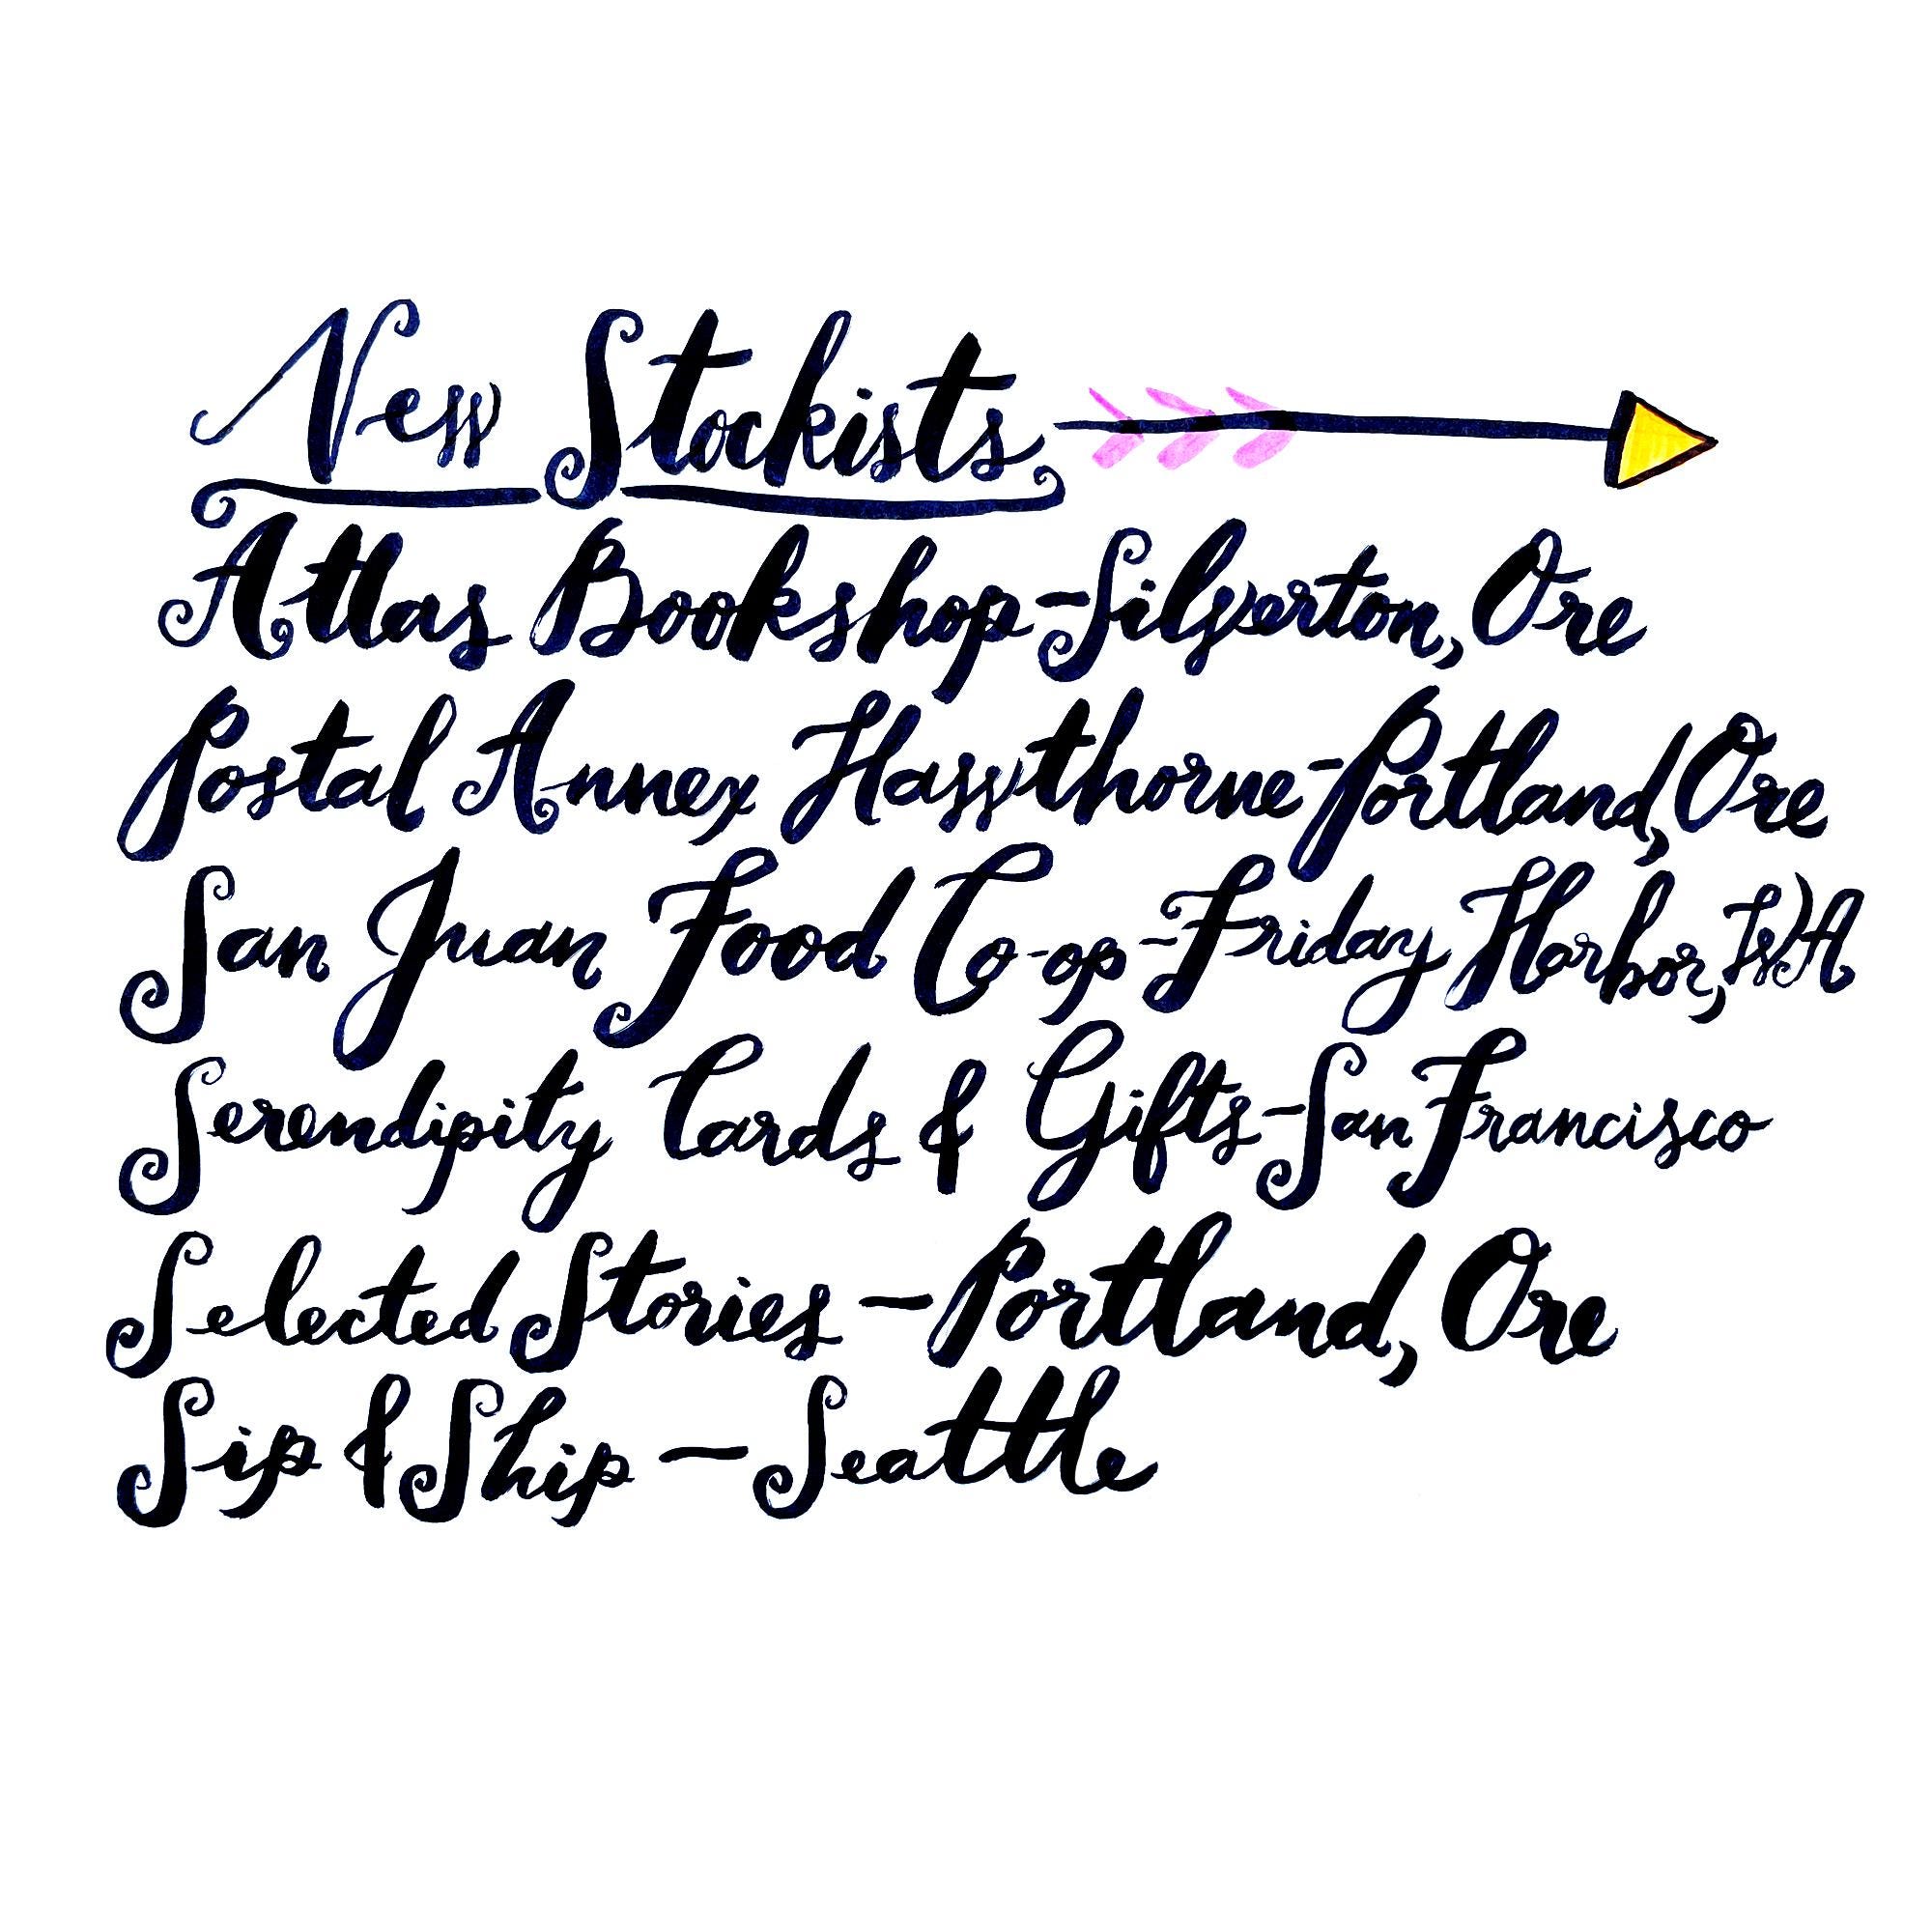 New Stockists
Atlas Bookshop-Silverton, Ore
Postal Annex Hawthorne-Portland, Ore
San Juan Food Co-op-Friday Harbor, WA
Serendipity Cards & Gifts-San Francisco
Selected Stories - Portland, Ore
Sip & Ship - Seattle